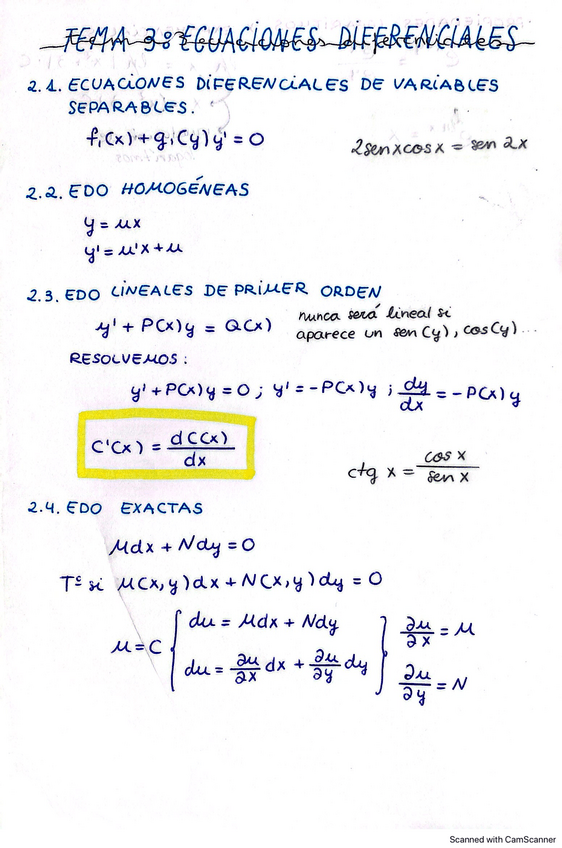 TEMA 3: ECUACIONES DIFERENCIALES
2.1. ECUACIONES DIFERENCIALES DE VARIABLES
SEPARABLES.
f₁(x) + g₁(y) y' = 0
2senxcosx = sen 2x
2.2. EDO HOMOGÉNEAS
y = ux
y' = u'x + u
2.3. EDO LINEALES DE PRIMER ORDEN
y' + P(x) y = Q(x)
nunca será lineal si
aparece un sen(y), cos(y)...
RESOLVEMOS:
y' + P(x) y = 0 ; y' = -P(x) y ; dy/dx = -P(x) y
C'(x) = dC(x)/dx
ctg x = cos x / sen x
2.4. EDO EXACTAS
Mdx + Ndy = 0
Tº si M(x,y)dx + N(x,y)dy = 0
u = C { du = Mdx + Ndy
du = ∂u/∂x dx + ∂u/∂y dy }
∂u/∂x = M
∂u/∂y = N
Scanned with CamScanner